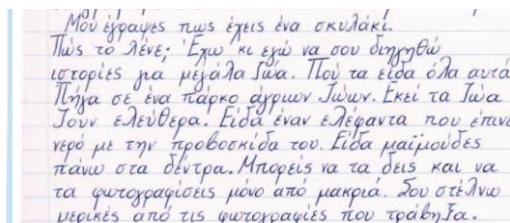 Μου έγραψες πως έχεις ένα σκυλάκι.
Πώς το λένε; Έχω κι εγώ να σου διηγηθώ
ιστορίες για μεγάλα ζώα. Πού τα είδα όλα αυτά
Πήγα σε ένα πάρκο άγριων ζώων. Εκεί τα ζώα
ζουν ελεύθερα. Είδα έναν ελέφαντα που έπινε
νερό με την προβοσκίδα του. Είδα μαϊμούδες
πάνω στα δέντρα. Μπορείς να τα δεις και να
τα φωτογραφίσεις μόνο από μακριά. Σου στέλνω
μερικές από τις φωτογραφίες που τράβηξα.